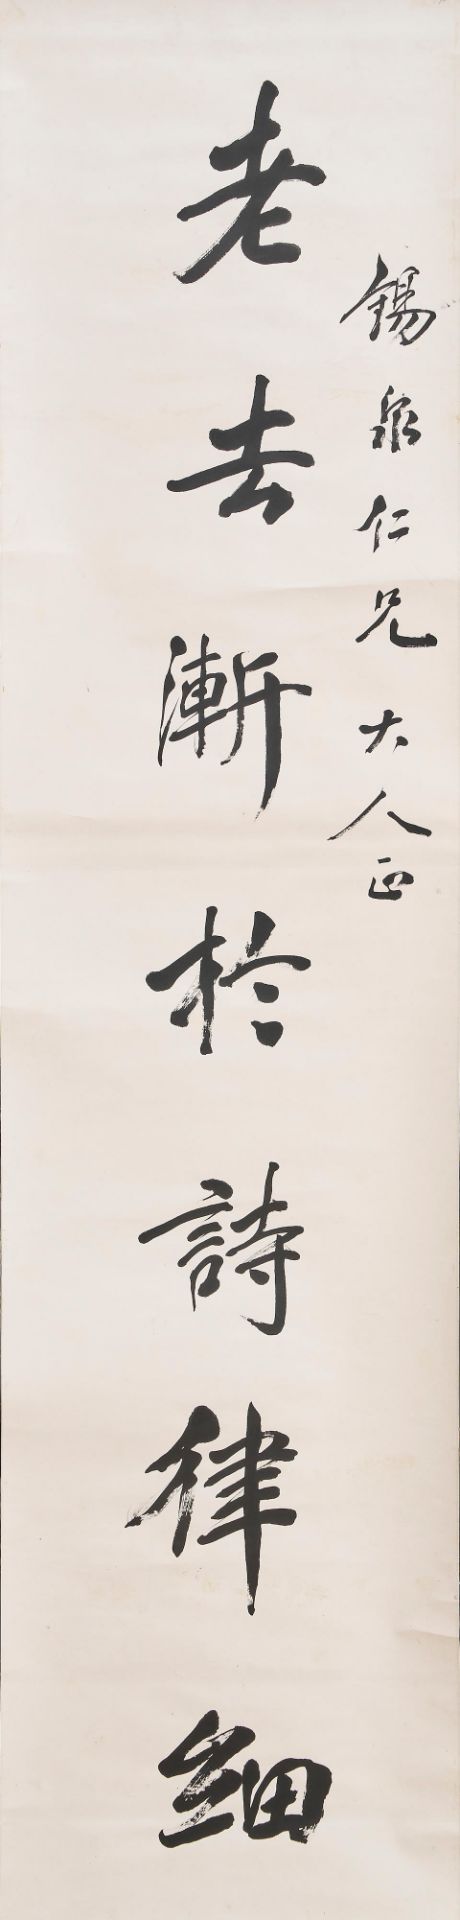 錫泉仁兄大人正
老去漸於詩律細